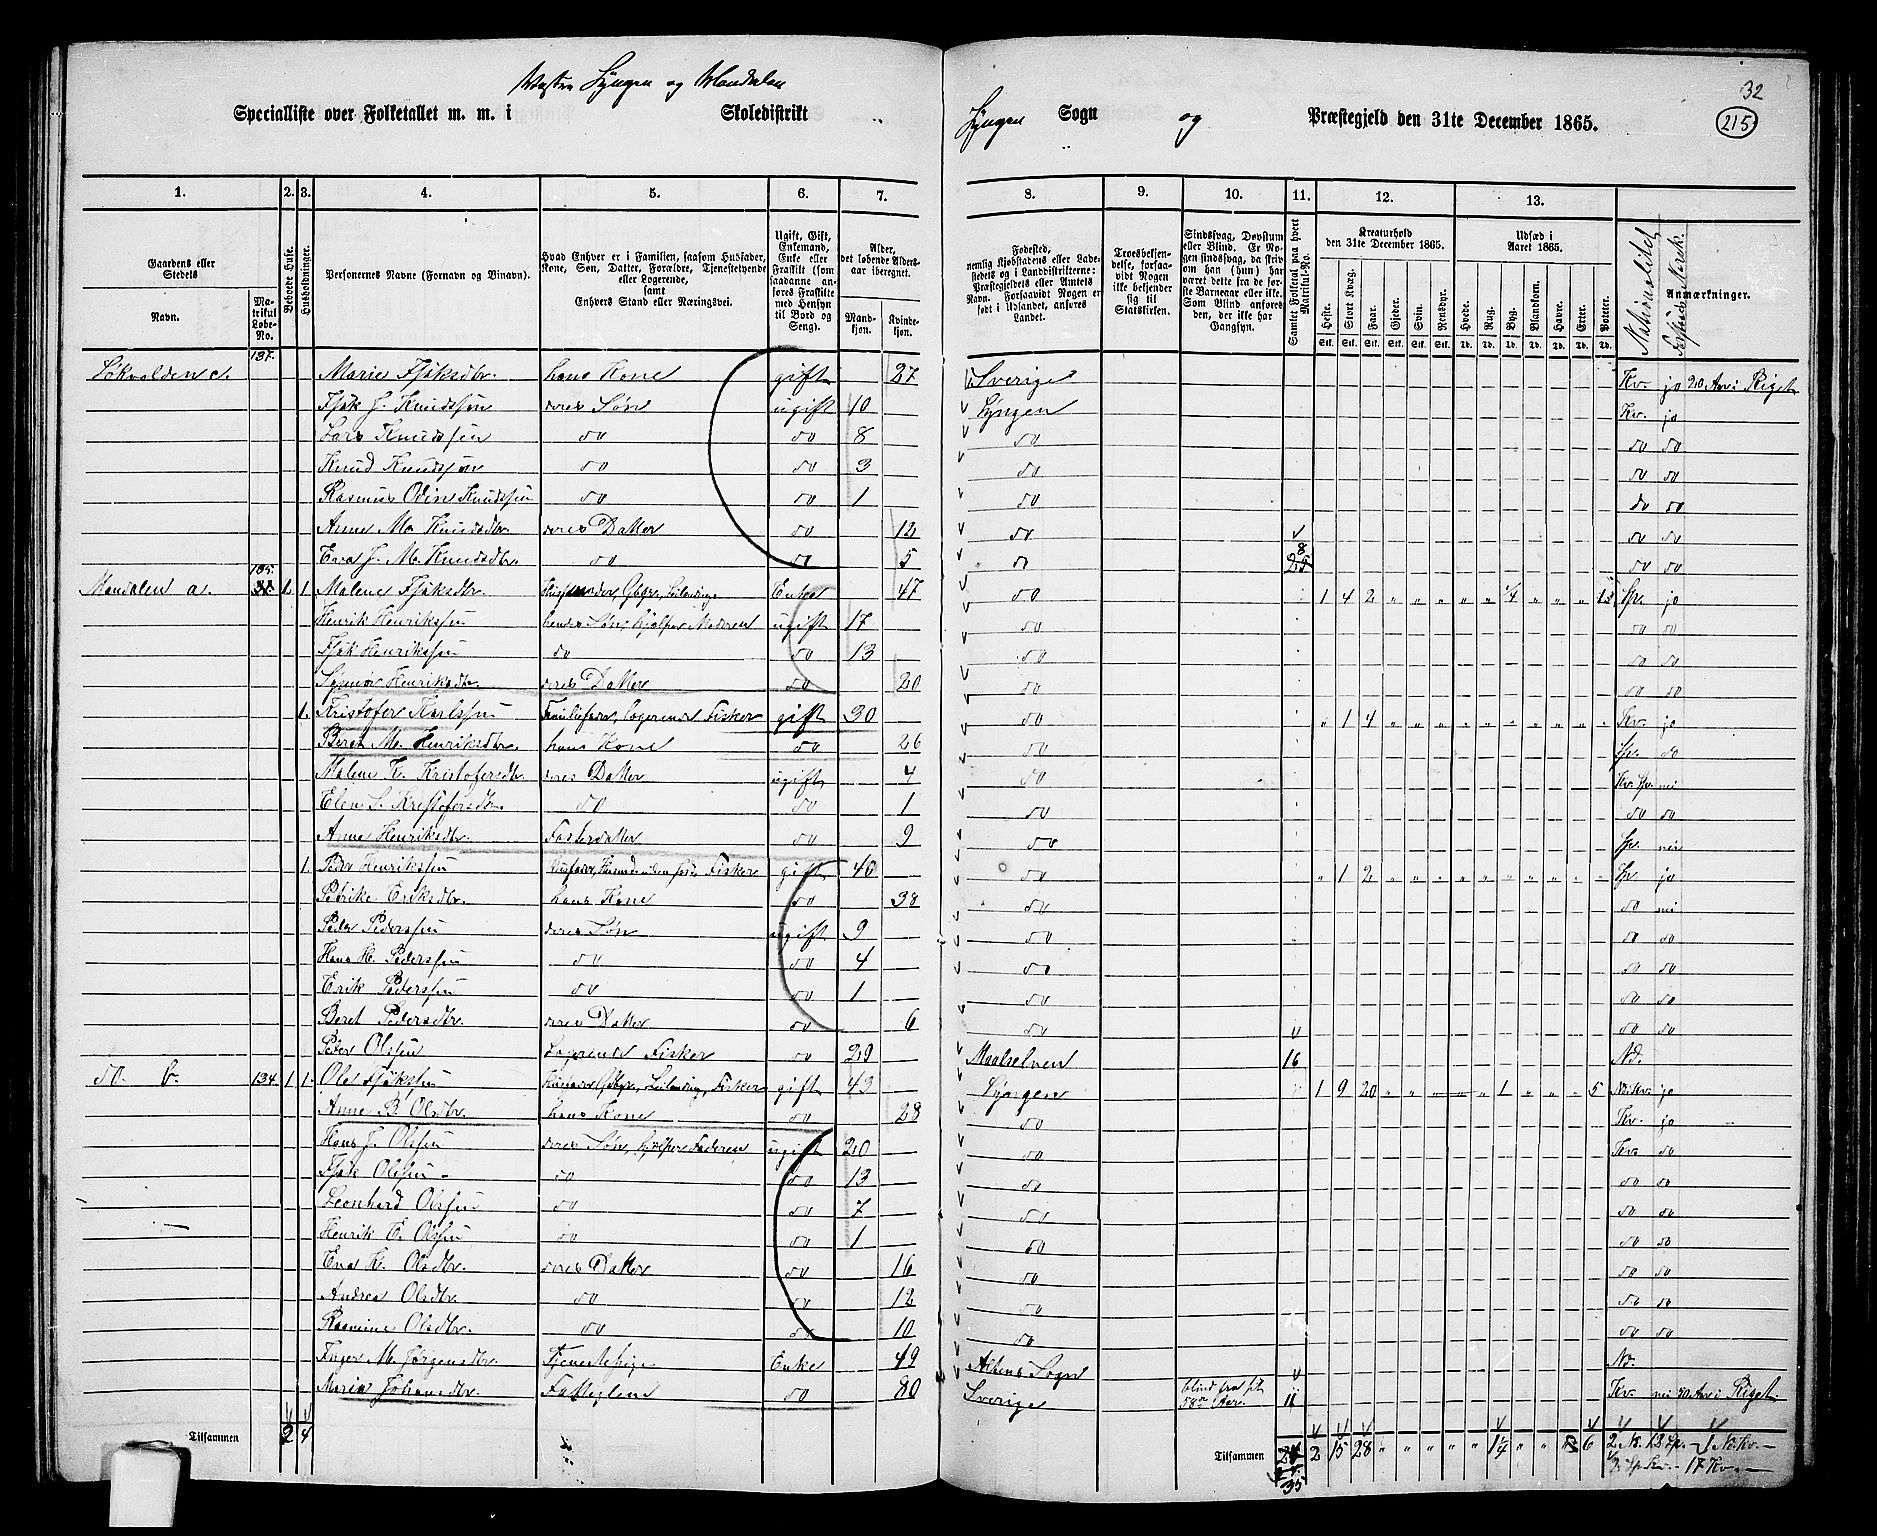 Vestre Lyngen og Mandalen
Specialliste over Folketallet m. m. i Skoledistrikt
Lyngen Sogn og Præstegjeld den 31te December 1865.
32
215
1. 2. 3. 4. 5. 6. 7. 8. 9. 10. 11. 12. 13.
Gaardens eller Stedets Navn.
Matrikul Løbe-No.
Beboede Huse.
Husholdninger.
Personernes Navne (Fornavn og Tilnavn).
Hvad Enhver er i Familien, saasom Husfader, Kone, Søn, Datter, Forældre, Tjenestetyende eller Logerende, samt Enhvers Stand eller Næringsvei.
Ugift, Gift, Enkemand, Enke eller Fraskilt (som saadanne anføres Fraskilte med Hensyn til Bord og Seng).
Alder, det løbende Aldersaar iberegnet.
Mandkjøn. Kvindekjøn.
Fødested, nemlig Kjøbstadens eller Ladestedets og i Landdistrikterne: Præstegjeldets eller Amtets Navn. Forsaavidt Nogen er født i Udlandet, anføres Landet.
Troesbekjendelse, forsaavidt Nogen ikke bekjender sig til Statskirken.
Sindssvag, Døvstum eller Blind. Er Nogen sindssvag, da skrives om han (hun) har været dette fra de første Barneaar eller ikke. Som Blind anføres den, der ikke har Gangsyn.
Samlet Folketal paa hvert Matrikul-No.
Kreaturhold den 31te December 1865.
Heste. Stort Kvæg. Faar. Gjeder. Svin. Rensdyr.
Udsæd i Aaret 1865.
Hvede. Rug. Byg. Blandkorn. Havre. Erter. Poteter.
Stk. Stk. Stk. Stk. Stk. Stk. Td. Td. Td. Td. Td. Td. Td.
Nationalitet
Anmærkninger.
137.
Marie Fjøksdtr. hans Kone gift 27 Sverige Kv. jo 20 Aar i Riget
Fjøk J. Knudssen deres Søn ugift 10 Lyngen Kv. jo
Lars Knudssen do do 8 do do do
Knud Knudssen do do 3 do do do
Rasmus Odin Knudssen do do 1 do do do
Anne M. Knudsdtr. deres Datter do 12 do do do
Eva J. M. Knudsdtr. do do 5 do 8 25 do do
135.
Mandalen a. 1 1 Malene Fjøksdtr. Enke 47 do 1 4 2 " " " " " 1/4 " " " Sp. jo
Henrik Henrikssen hendes Søn, hjælper Moderen ugift 17 do do do
Fjøk Henrikssen do do 13 do do do
Henriksdtr. deres Datter do 20 do do do
1. Kristofer Karlssen Familiefader, Logerende Fisker gift 30 do " 1 4 " " " " " " " " " " Kv. jo
Beret M. Henriksdtr. hans Kone do 26 do Sp. do
Malene K. Kristofersdtr. deres Datter ugift 4 do Kv. Sp. nei
Elen S. Kristofersdtr. do do 1 do do do
Anne Henriksdtr. Fosterdatter do 9 do Sp. nei
1. Peder Henrikssen Husfader, Huusmand uden Jord, Fisker gift 40 do " 1 2 " " " " " " " " " " Sp. jo
Eriksdtr. hans Kone do 38 do do nei
Peder Pederssen deres Søn ugift 9 do do do
Hans H. Pederssen do do 4 do do do
Erik Pederssen do do 1 do do do
Beret Pedersdtr. deres Datter do 6 do do do
Peder Olssen Logerende Fisker do 29 Maalselven 16 Nd.
do b. 134. 1 1 Ole Fjøkssen Husfader, Gbgr., Leilending, Fisker gift 43 Lyngen 1 9 20 " " " " " 1 " " " 5 No. Kv. jo
Anne B. Olsdtr. hans Kone do 28 do Kv. jo
Hans J. Olssen deres Søn, hjælper Faderen ugift 20 do Kv. do
Fjøk Olssen do do 13 do do do
Leonhard Olssen do do 7 do do do
Henrik E. Olssen do do 1 do do do
Eva K. Olsdtr. deres Datter do 16 do do do
Andrea Olsdtr. do do 12 do do do
Rasmine Olsdtr. do do 10 do do do
Inger M. Jørgensdtr. Tjenestepige Enke 49 Altens Sogn Nd.
Maria Johansdtr. Fattiglem do 80 Sverige blind fra sit 58de Aar. 11 Kv. nei 50 Aar i Riget
Tilsammen 2 4
Tilsammen 35 2 15 28 " " " " " 1 1/4 " " 6 2 No. 12 Sp. – 1 No. Kv. –
Sp. Kv. – 17 Kv. –